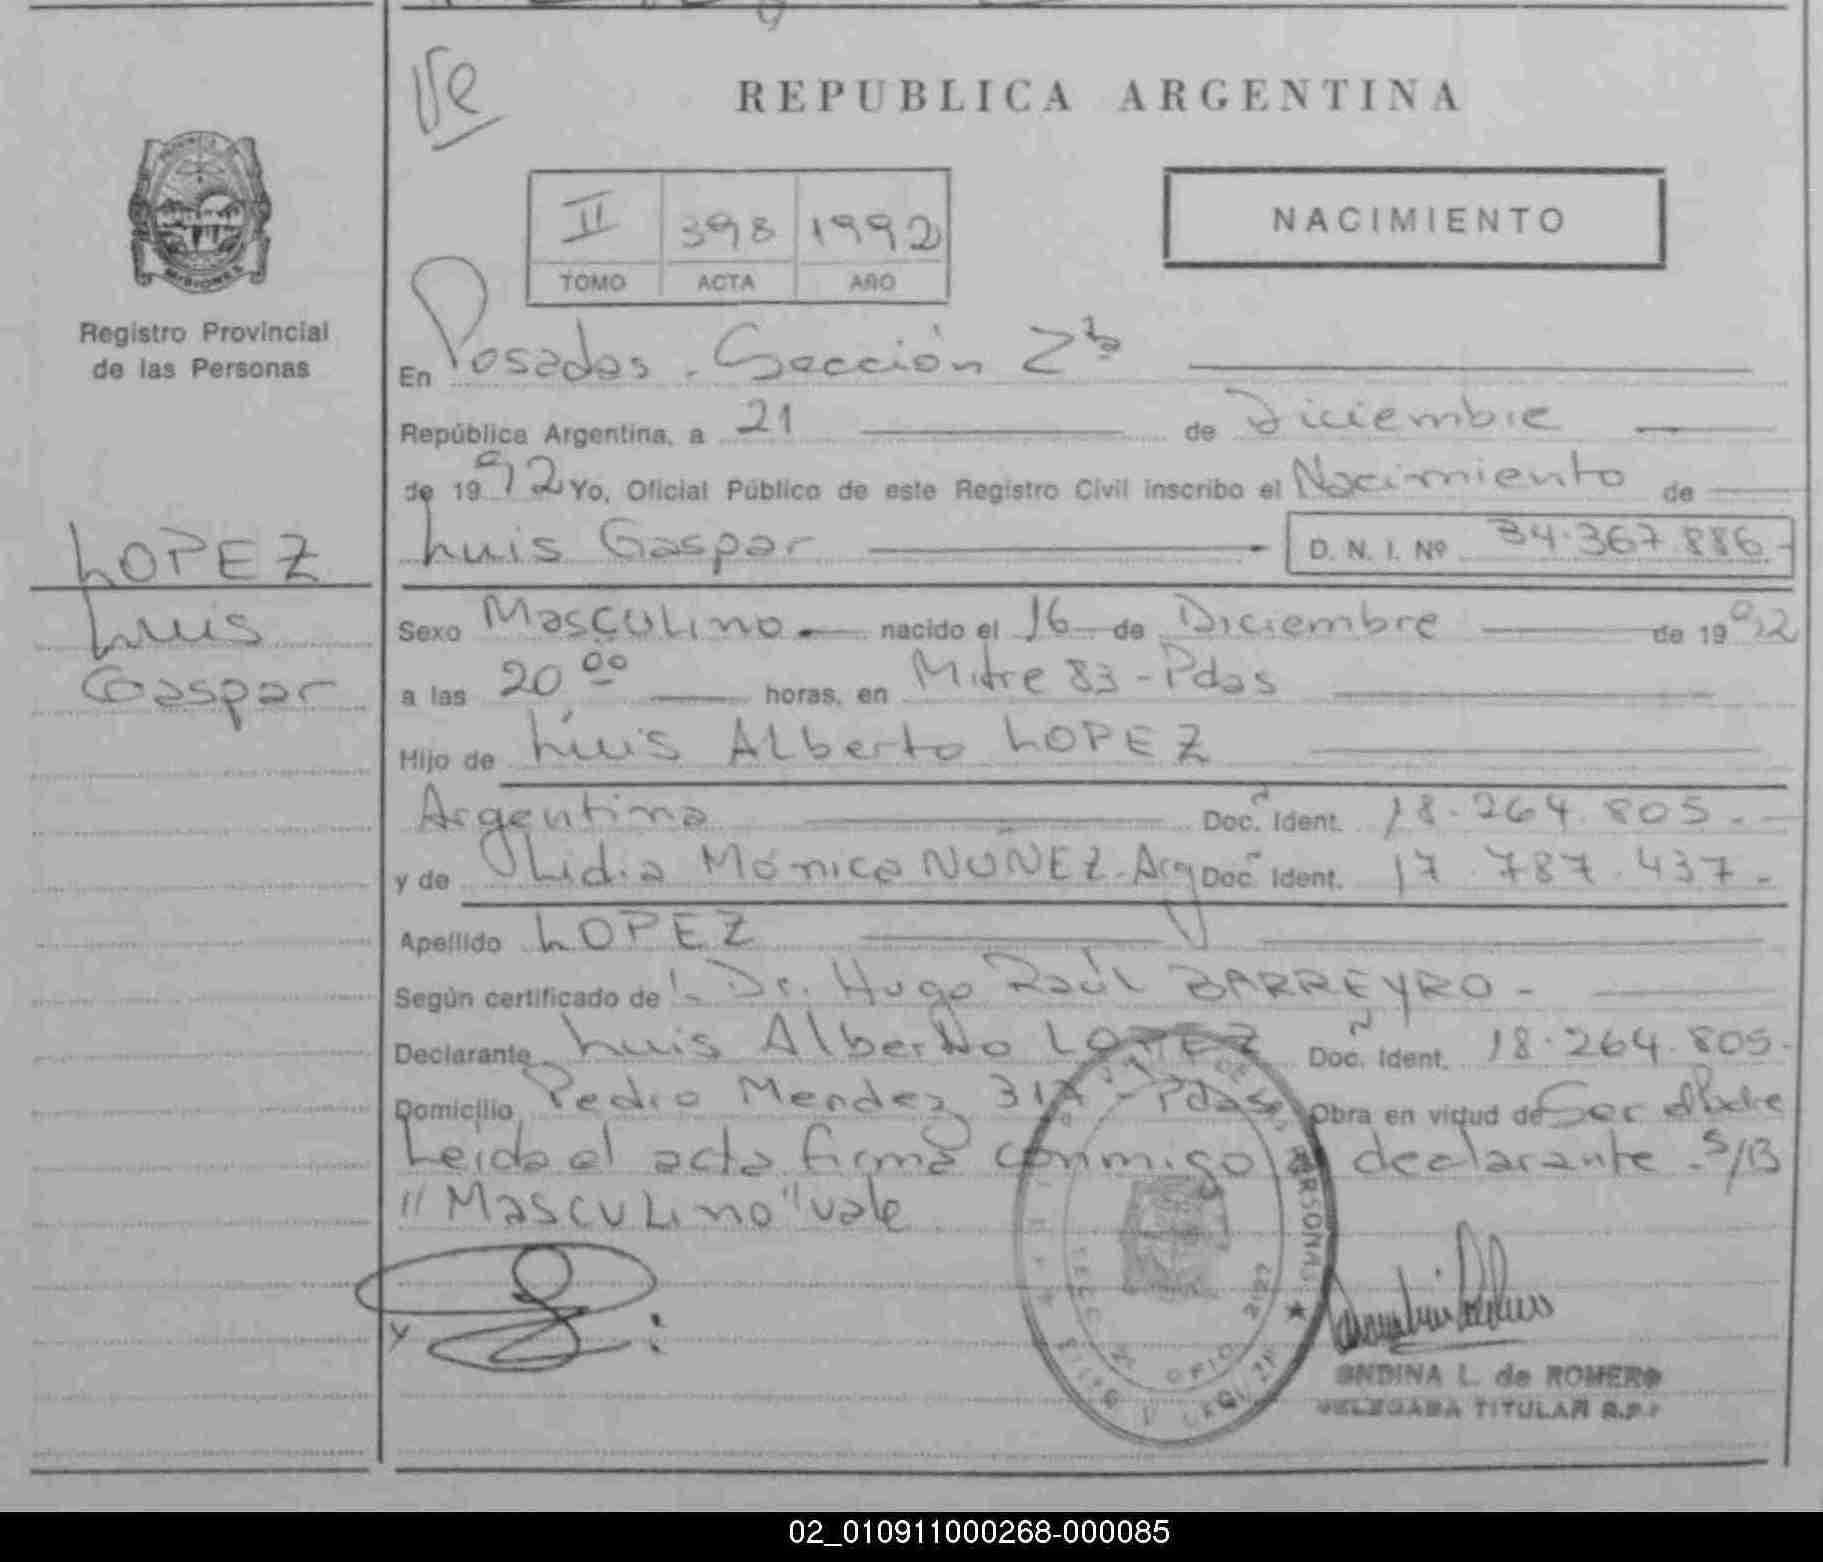 Ve
REPUBLICA ARGENTINA
II 398 1992
TOMO ACTA AÑO
NACIMIENTO
MISIONES
Registro Provincial
de las Personas
LOPEZ
Luis
Gaspar
En Posadas - Sección 2ª
República Argentina, a 21 de Diciembre
de 1992 Yo, Oficial Público de este Registro Civil inscribo el Nacimiento de
Luis Gaspar D. N. I. Nº 34.367.886-
Sexo Masculino nacido el 16 de Diciembre de 1992
a las 20 00 horas, en Mitre 83 - Pdas
Hijo de Luis Alberto LOPEZ
Argentina Doc. Ident. 18.264.805.-
y de Lidia Mónica NUÑEZ - Arg Doc. Ident. 17.787.437-
Apellido LOPEZ
Según certificado de Dr. Hugo Raúl BARREYRO -
Declarante Luis Alberto LOPEZ Doc. Ident. 18.264.805-
Domicilio Pedro Mendez - Pdas Obra en virtud de Ser el Padre
Leida el acta firma conmigo el declarante - S/B
"Masculino" vale
PERSONAS
ONDINA L. de ROMERO
DELEGADA TITULAR R.P.P
02_010911000268-000085